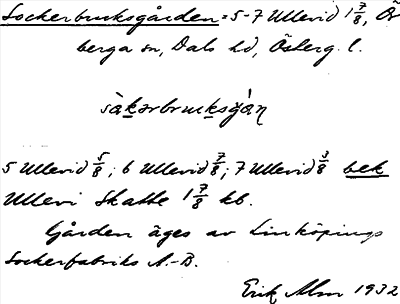 Sockerbruksgården = 5-7 Ullevid 1 7/8, Ör
berga sn, Dals hd, Österg. l.
såkərbruksgàɳ
5 Ullevid 5/8; 6 Ullevid 7/8; 7 Ullevid 3/8 bek
Ullevi Skatte 1 7/8 kb.
Gården äges av Linköpings
Sockerfabriks A.-B.
Erik Alm 1932